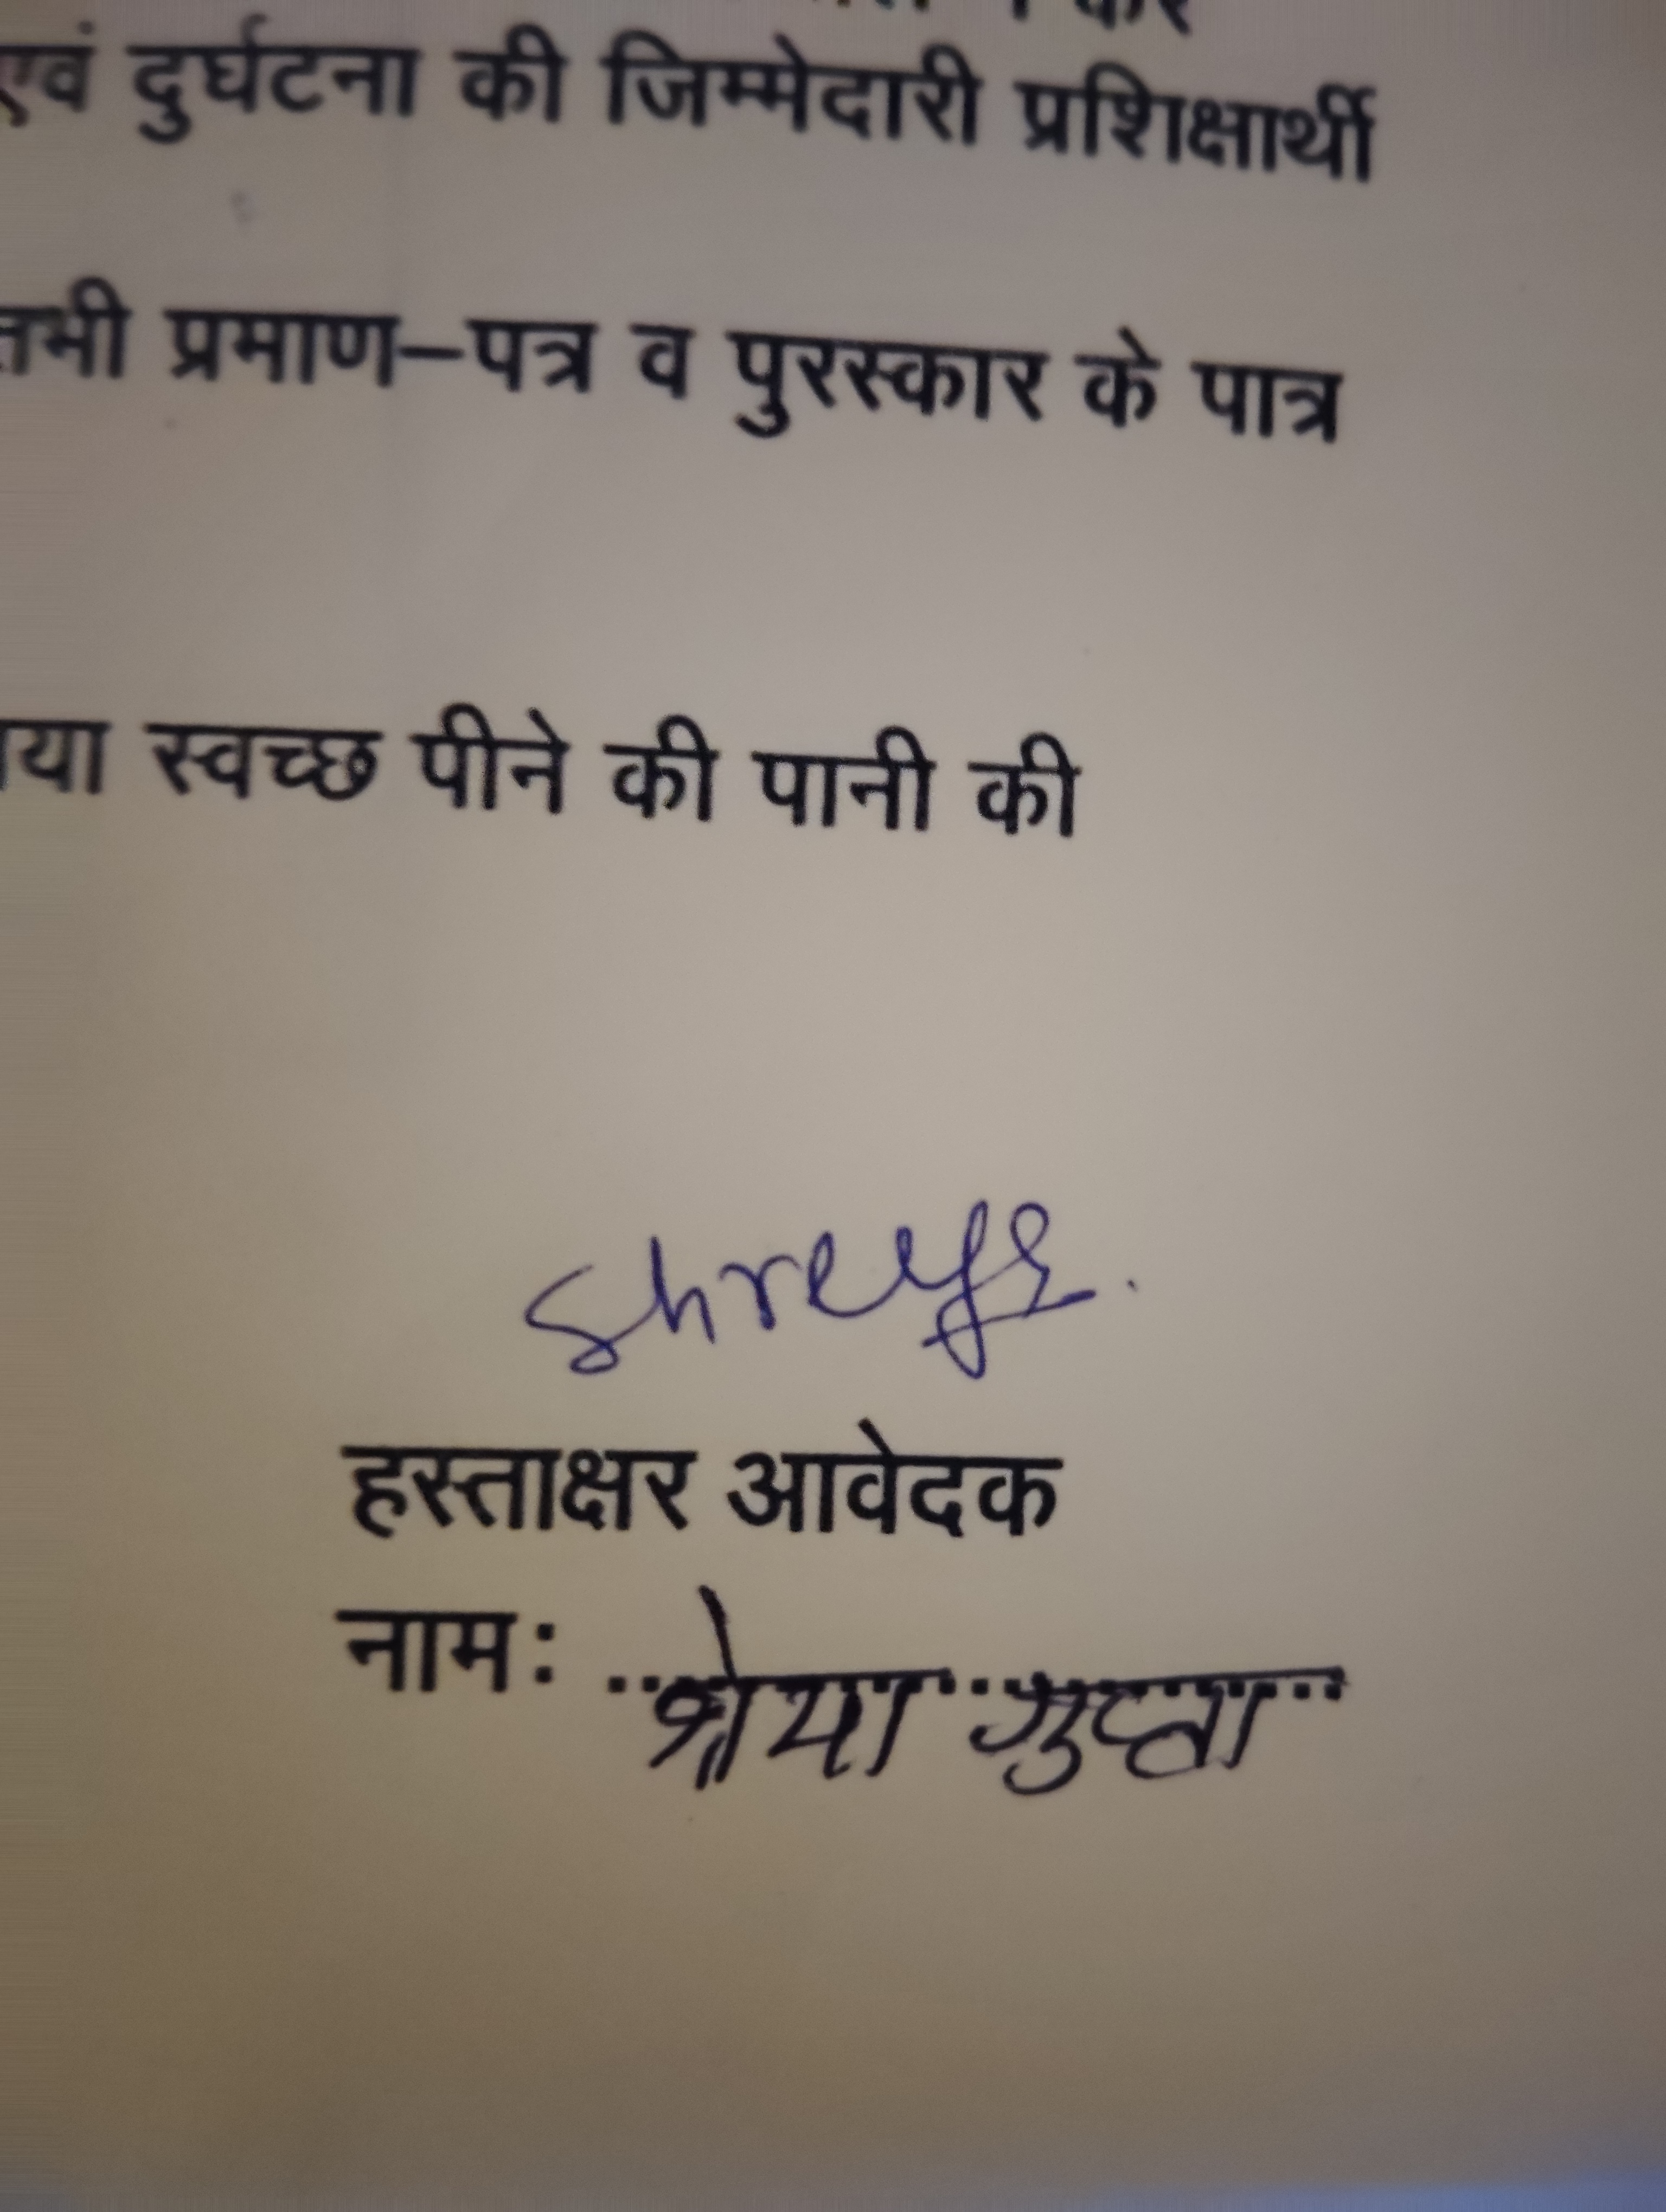 एवं दुर्घटना की जिम्मेदारी प्रशिक्षार्थी
तभी प्रमाण–पत्र व पुरस्कार के पात्र
स्वच्छ पीने की पानी की
Shreya.
हस्ताक्षर आवेदक
नामः ..श्रेया गुप्ता..